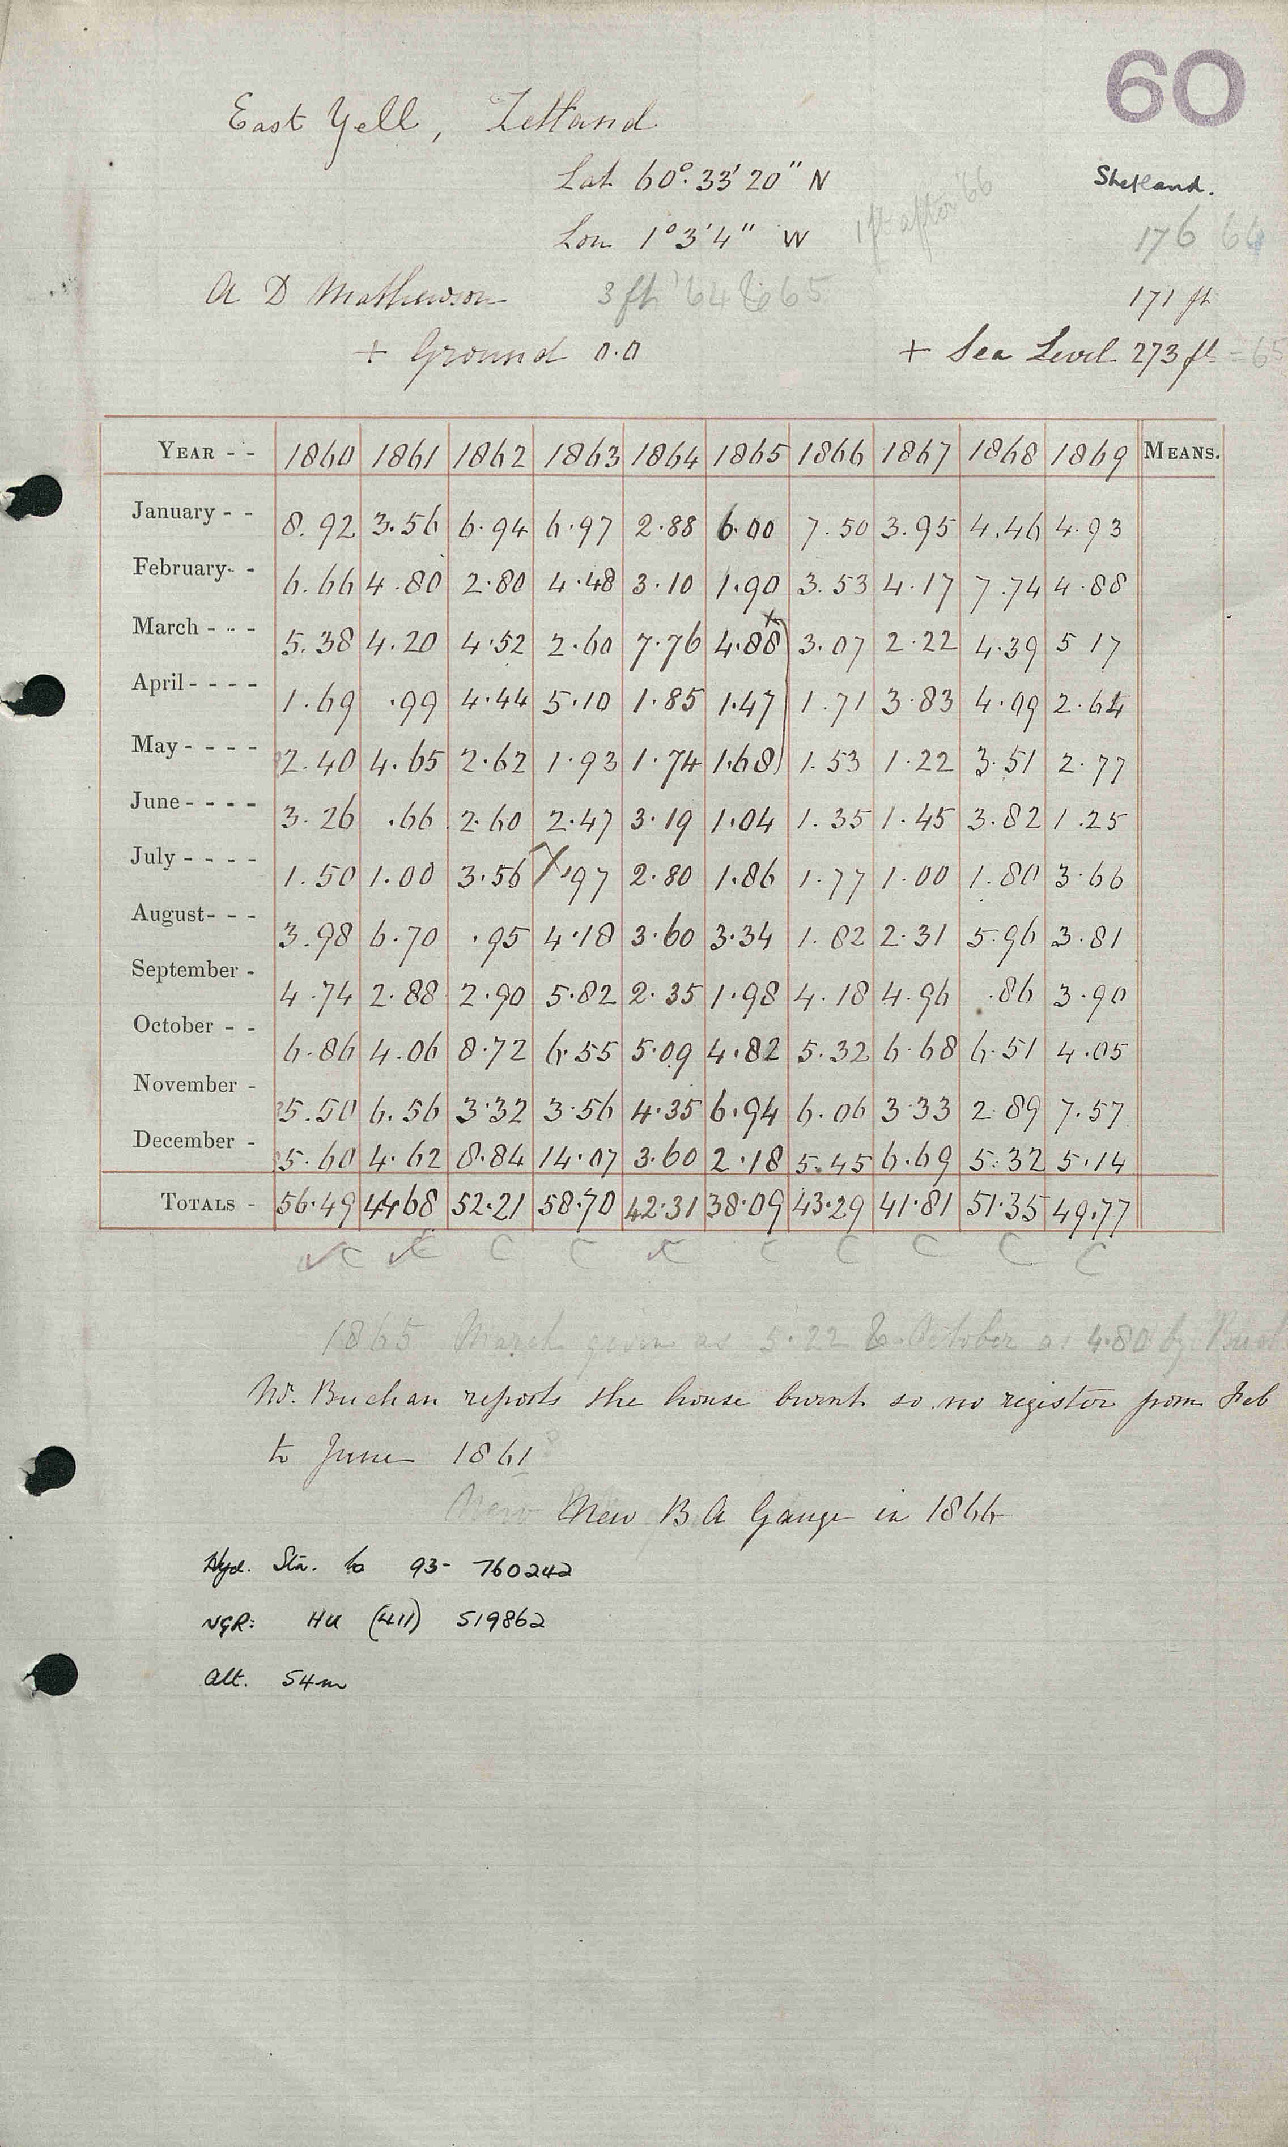 60
East Yell, Zetland
Lat 60°.33'20" N
Shetland.
Lon 1°3'4" W
1 ft after '66
176 66
A D Mathewson
3 ft '64 & 65
171 ft
+ Ground 0.0
+ Sea Level 273 ft = 65
YEAR - - 1860 1861 1862 1863 1864 1865 1866 1867 1868 1869 MEANS.
January - - 8.92 3.56 6.94 6.97 2.88 6.00 7.50 3.95 4.46 4.93
February- - 6.66 4.80 2.80 4.48 3.10 1.90 3.53 4.17 7.74 4.88
March - - - 5.38 4.20 4.52 2.60 7.76 4.88x 3.07 2.22 4.39 5 17
April - - - - 1.69 .99 4.44 5.10 1.85 1.47 1.71 3.83 4.09 2.64
May - - - - 2.40 4.65 2.62 1.93 1.74 1.68) 1.53 1.22 3.51 2.77
June - - - - 3.26 .66 2.60 2.47 3.19 1.04 1.35 1.45 3.82 1.25
July - - - - 1.50 1.00 3.56 X.97 2.80 1.86 1.77 1.00 1.80 3.66
August- - - 3.98 6.70 .95 4.18 3.60 3.34 1.82 2.31 5.96 3.81
September - 4.74 2.88 2.90 5.82 2.35 1.98 4.18 4.96 .86 3.90
October - - 6.86 4.06 8.72 6.55 5.09 4.82 5.32 6.68 6.51 4.05
November - 5.50 6.56 3.32 3.56 4.35 6.94 6.06 3.33 2.89 7.57
December - 5.60 4.62 8.84 14.07 3.60 2.18 5.45 6.69 5.32 5.14
TOTALS - 56.49 44.68 52.21 58.70 42.31 38.09 43.29 41.81 51.35 49.77
C C C C C C C C C C
1865 March given as 5.22 & October as 4.80 by
Mr. Buchan reports the house burnt so no register from Feb
to June 1861
New New B A Gauge in 1866
Hyd. Sta. No 93- 760242
NGR: HU (411) 519862
Alt. 54m